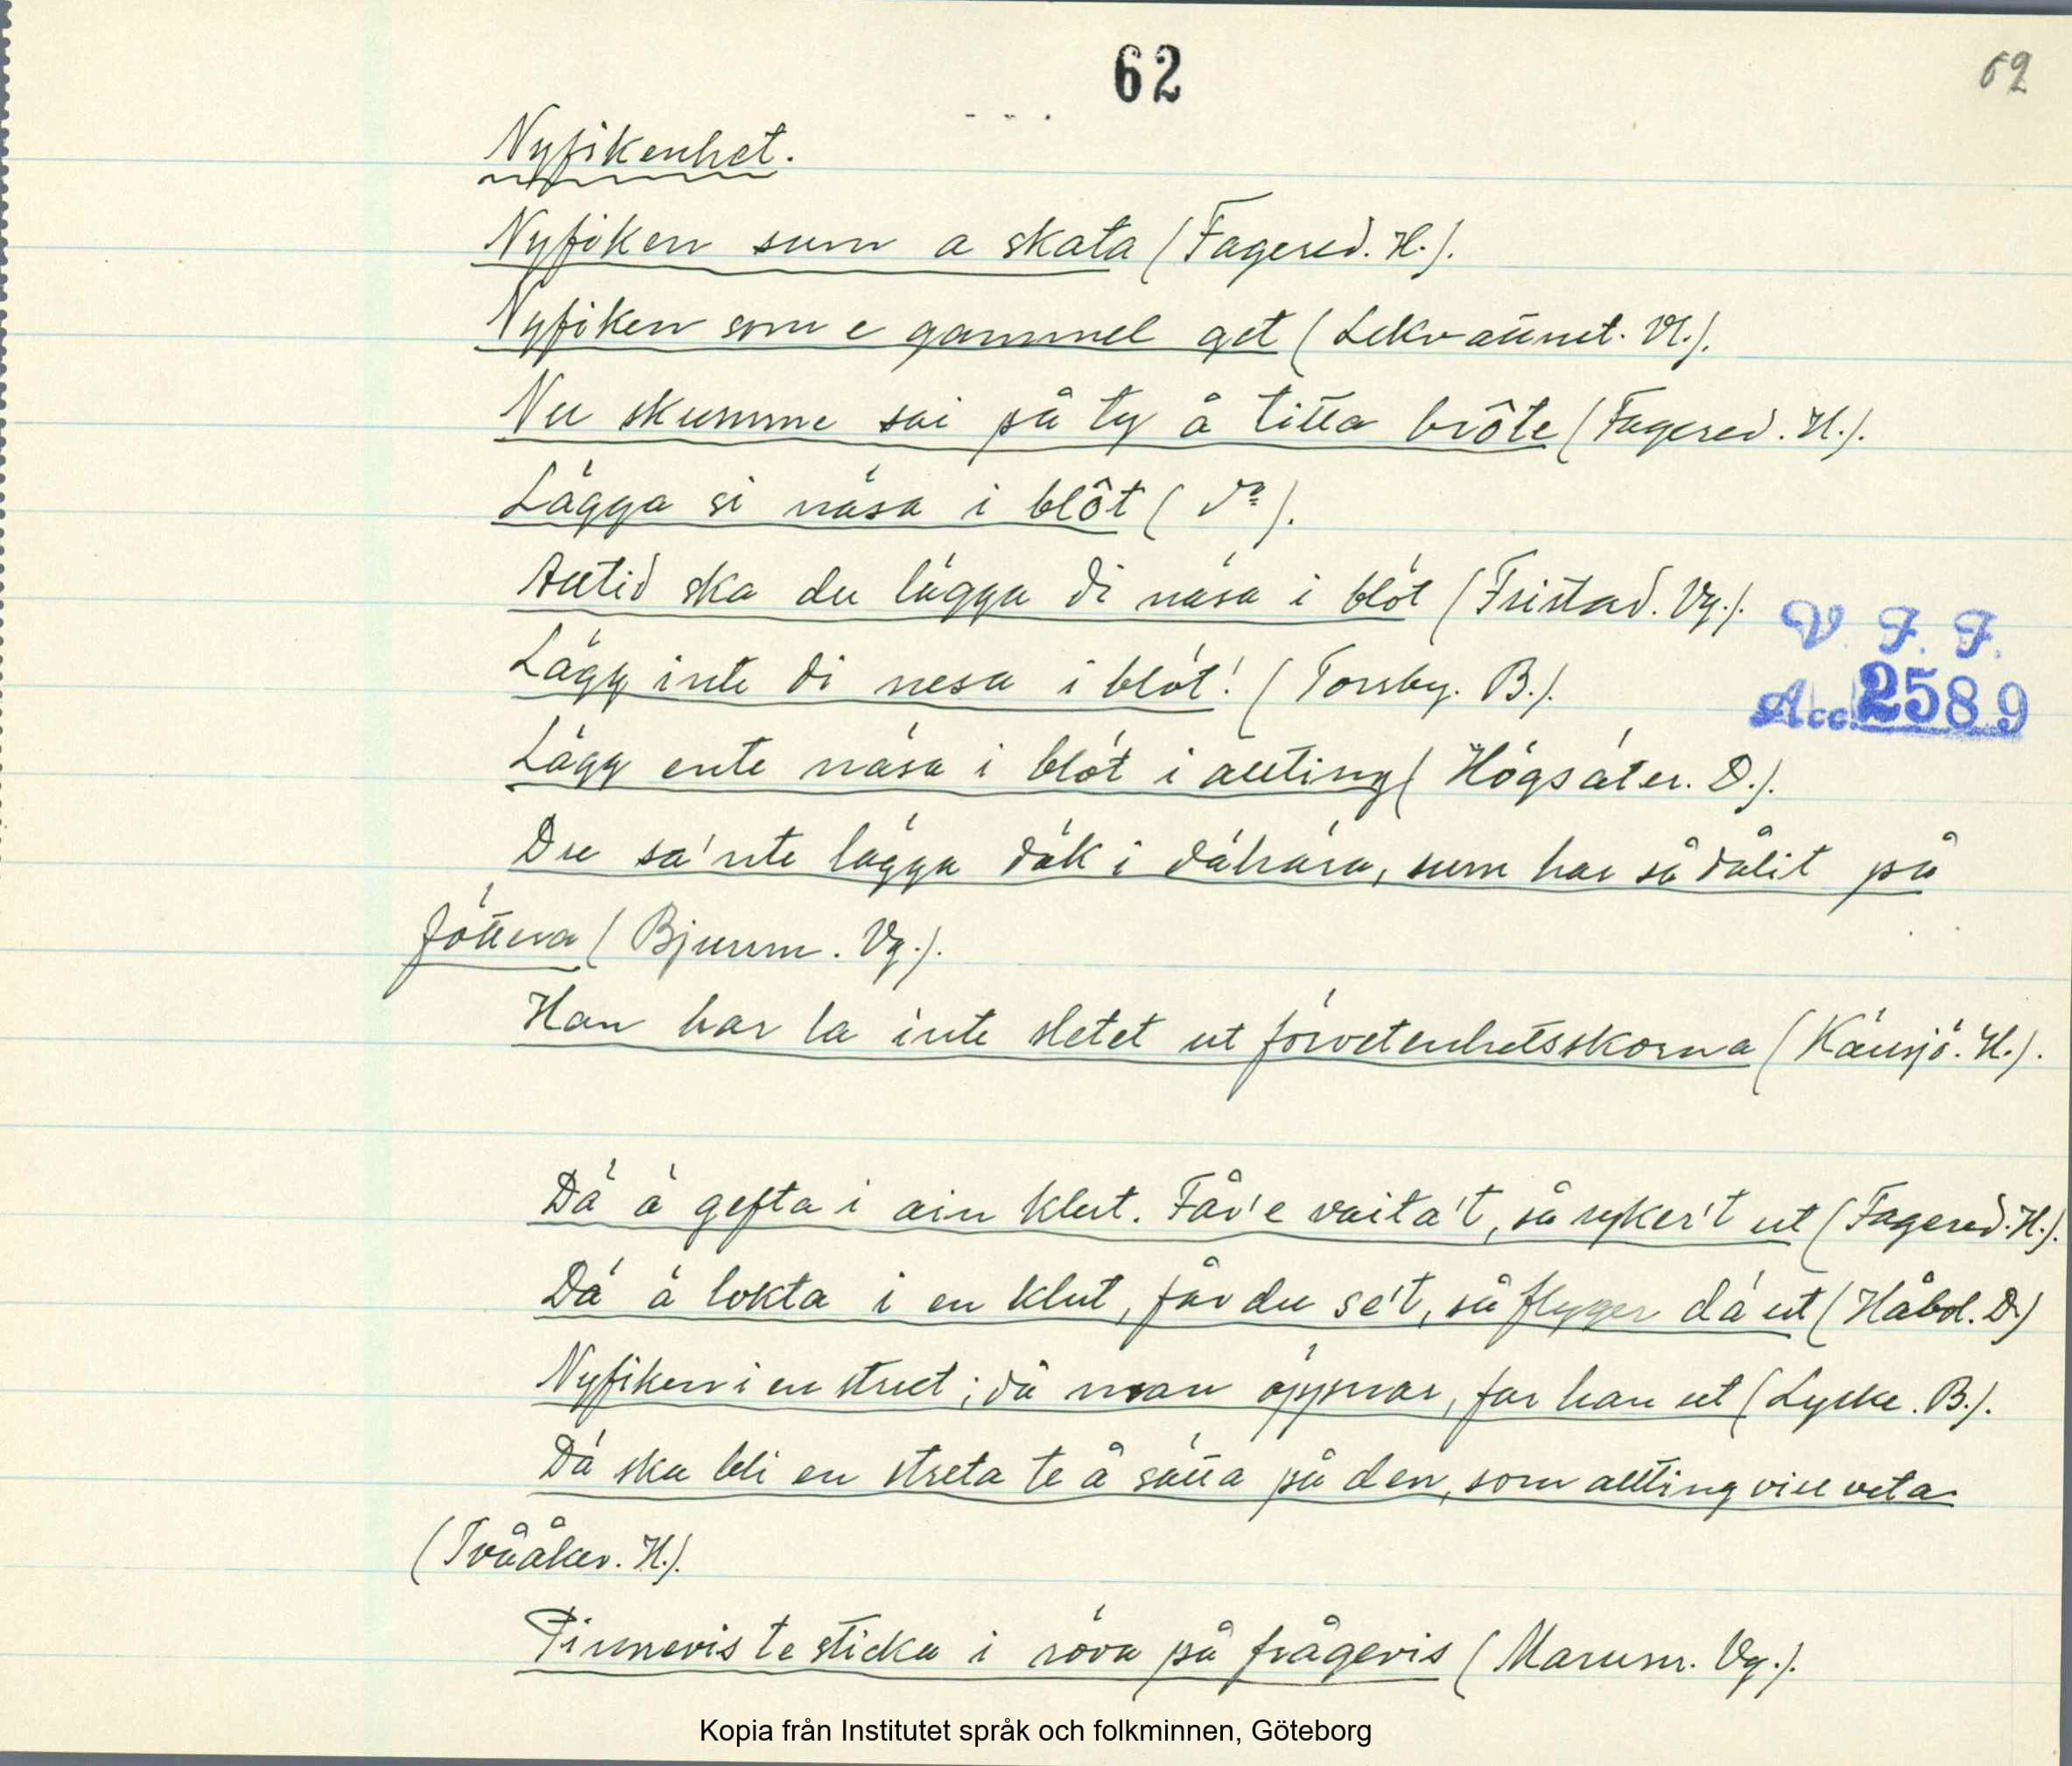 62
62
Nyfikenhet.
Nyfiken sum a skata (Fagered. H.).
Nyfiken som e gammel get (Lekvattnet. Vl.).
Nu skumme sai på ty å titta brôte (Fagered. H.).
Lägga si näsa i blôt (do).
Alltid ska du lägga di näsa i blöt (Fristad. Vg.).
V. F. F.
Lägg inte di nesa i blöt! (Torsby. B.).
Acc. 2589
Lägg ente näsa i blöt i allting (Högsäter. D.).
Du sa'nte lägga däk i dähära, sum har så dålit på
föttera (Bjurum. Vg.).
Han har la inte sletet ut förvetenhetsskorna (Källsjö. H.).
Dä ä gefta i ain klut. Får'e vaita't, så ryker't ut (Fagered. H.).
Dä ä lokta i en klut, får du se't, så flyger dä ut (Håbol. D.)
Nyfiken i en strut; då man öppnar, far han ut (Lycke. B.).
Dä ska bli en streta te å sätta på den, som allting vill veta
(Tvååker. H.).
Pinnevis te sticka i röva på frågevis (Marum. Vg.).
Kopia från Institutet språk och folkminnen, Göteborg